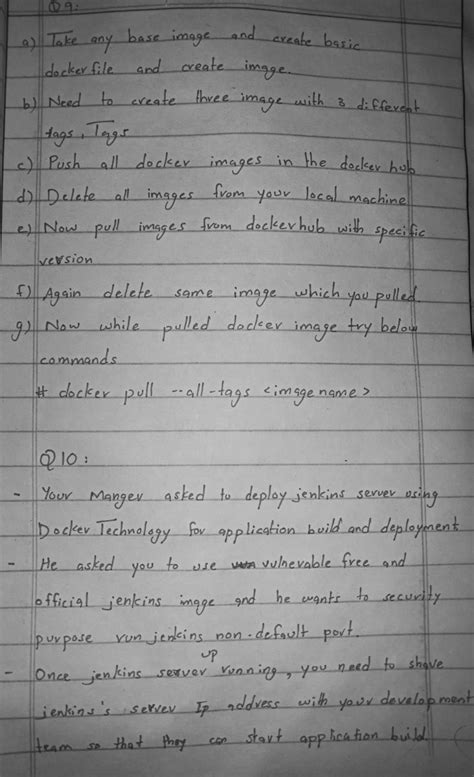 Q9:
a) Take any base image and create basic
dockerfile and create image.
b) Need to create three image with 3 different
tags, Tags
c) Push all docker images in the docker hub
d) Delete all images from your local machine
e) Now pull images from dockerhub with specific
version
f) Again delete same image which you pulled
g) Now while pulled docker image try below
commands
# docker pull --all-tags <image name>
Q10:
- Your Manger asked to deploy jenkins server using
Docker Technology for application build and deployment
- He asked you to use vulnevable free and
official jenkins image and he wants to security
purpose run jenkins non-default port.
- Once jenkins server up running, you need to share
jenkins's server Ip address with your development
team so that they can start application build.